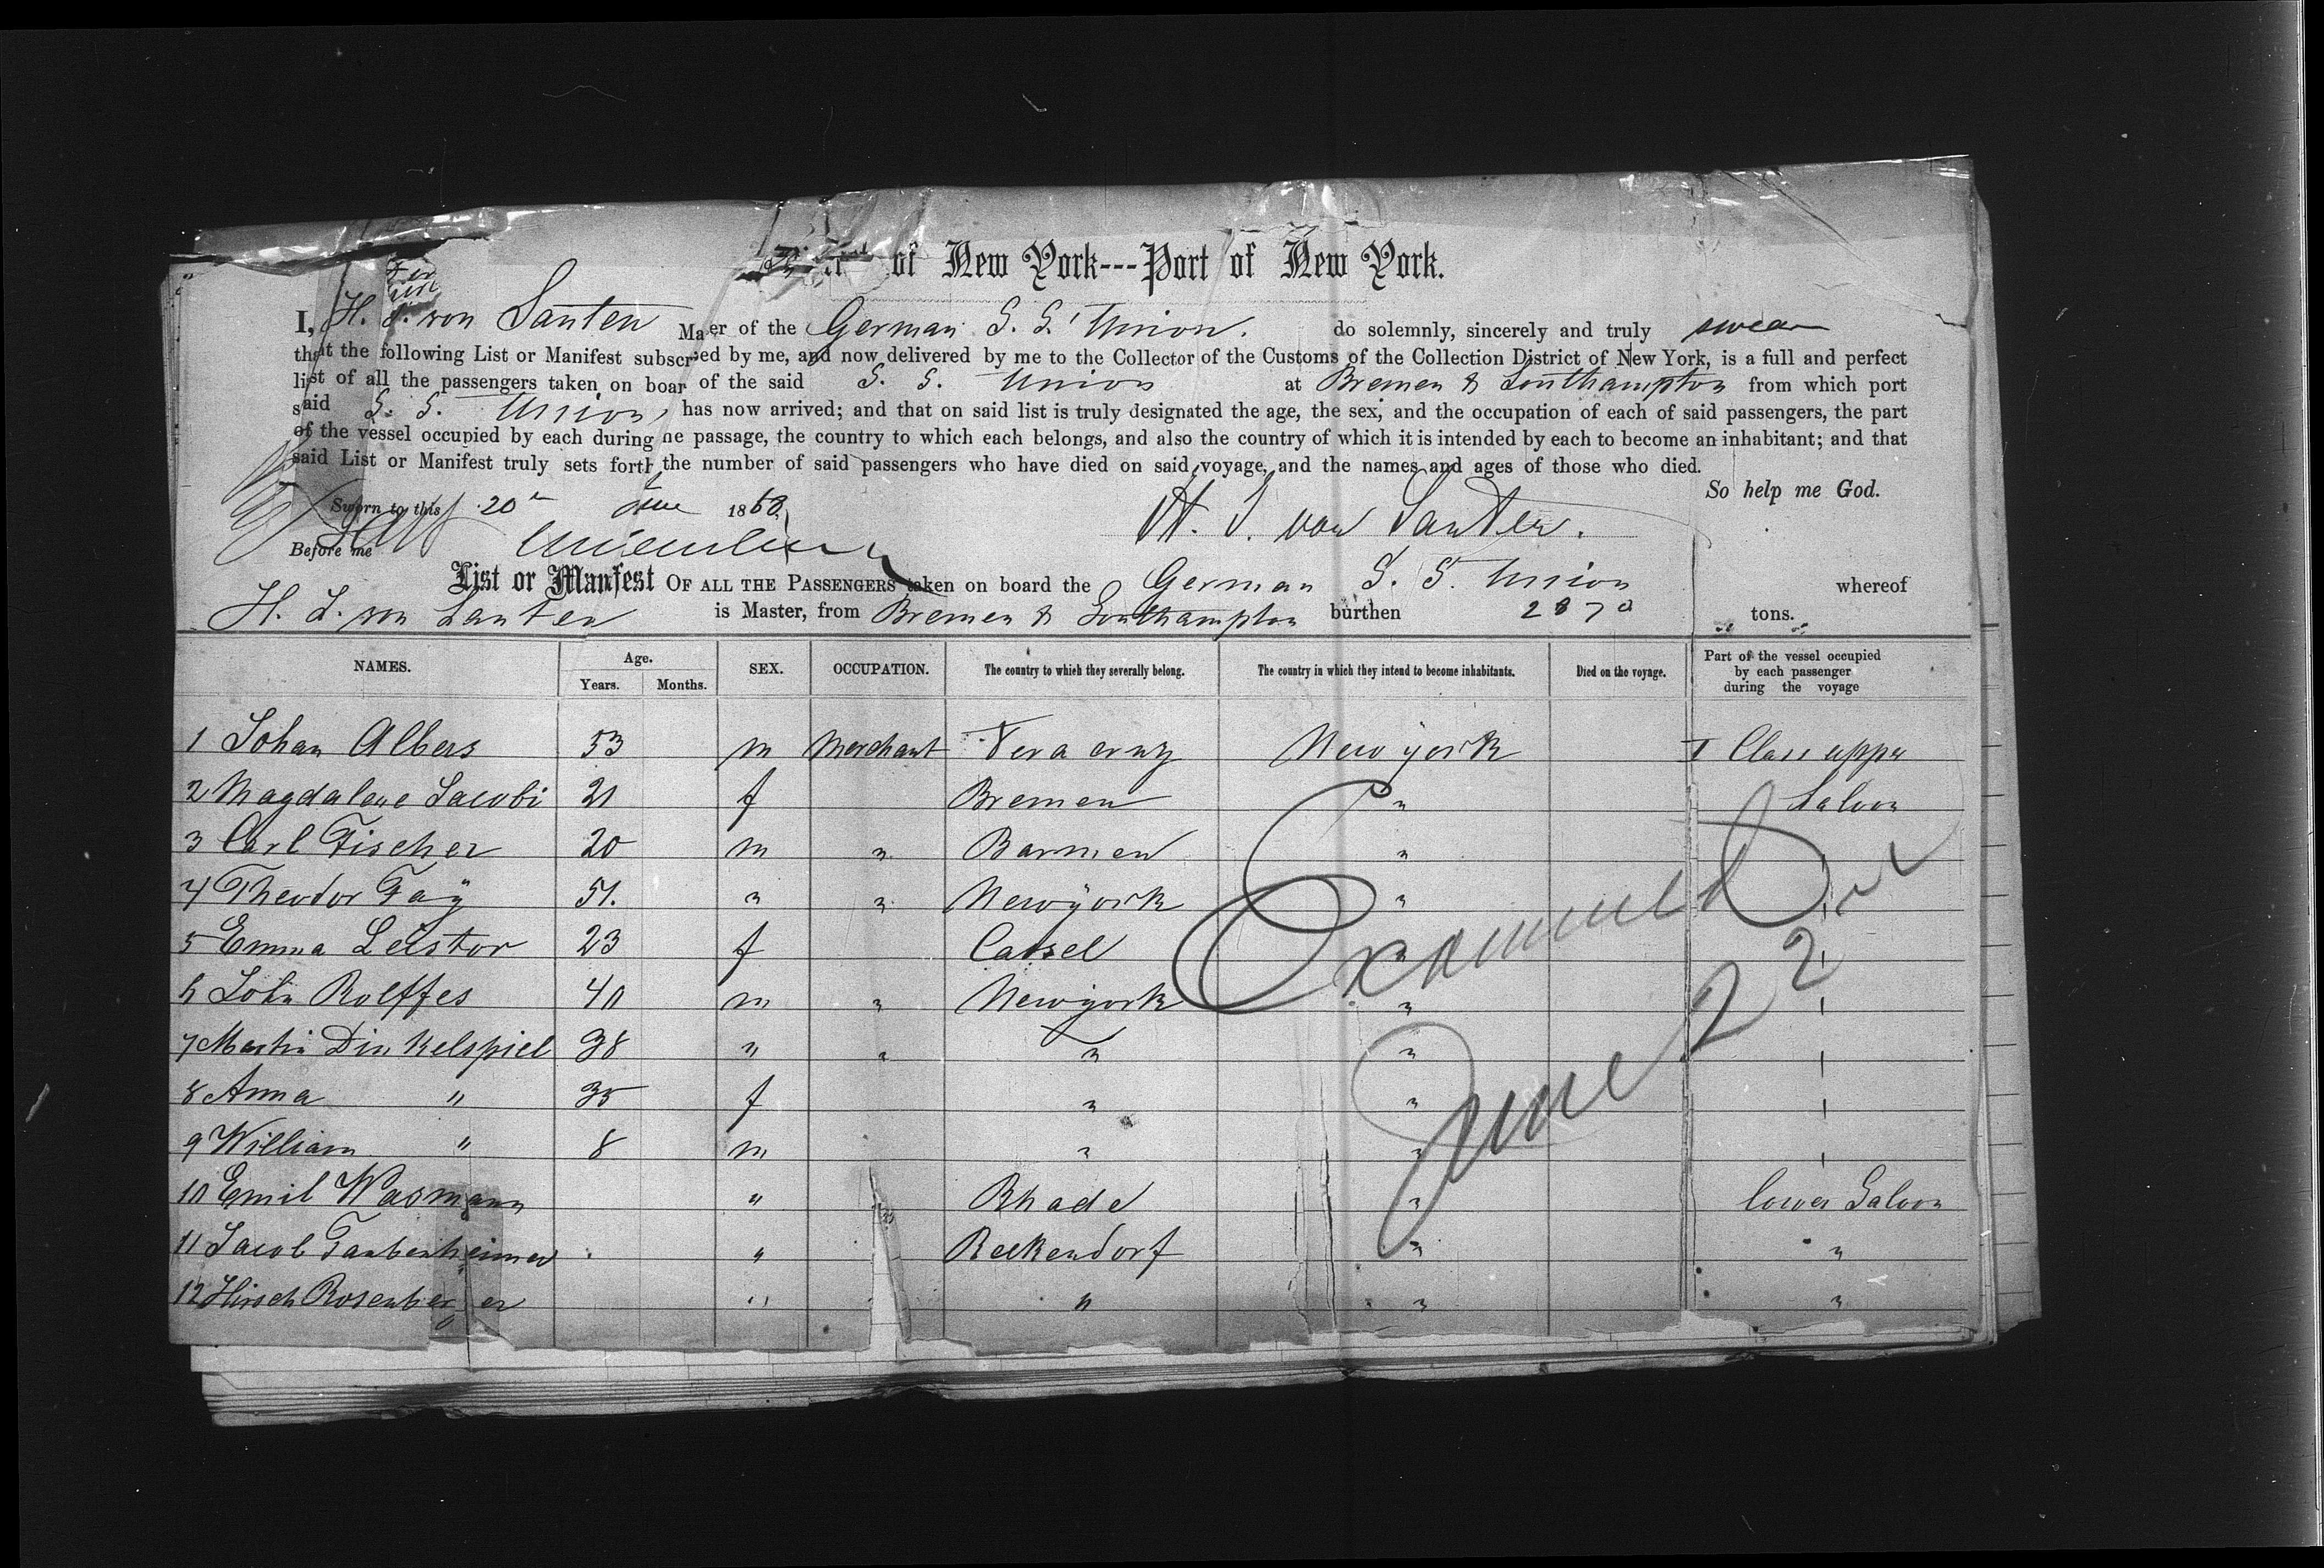 of New York---Port of New York.
I, H. J. von Santen Ma er of the German S. S. Union. do solemnly, sincerely and truly swear
that the following List or Manifest subscr ed by me, and now delivered by me to the Collector of the Customs of the Collection District of New York, is a full and perfect
list of all the passengers taken on boar of the said S. S. Union at Bremen & Southampton from which port
said S. S. Union, has now arrived; and that on said list is truly designated the age, the sex, and the occupation of each of said passengers, the part
of the vessel occupied by each during he passage, the country to which each belongs, and also the country of which it is intended by each to become an inhabitant; and that
said List or Manifest truly sets forth the number of said passengers who have died on said voyage, and the names and ages of those who died.
So help me God.
Sworn to this 20 June 186
H. J. von Santen.
Before me
List or Manfest OF ALL THE PASSENGERS taken on board the German S. S. Union whereof
H. J. von Santen is Master, from Bremen & Southampton burthen 2870 tons.
NAMES. Age. Years. Months. SEX. OCCUPATION. The country to which they severally belong. The country in which they intend to become inhabitants. Died on the voyage. Part of the vessel occupied by each passenger during the voyage
1 Johan Albers 53 m Merchant Vera cruz New york I Class upper
2 Magdalene Jacobi 21 f Bremen " Saloon
3 Carl Fischer 20 m " Barmen " "
4 Theodor Fay 51. " " Newyork " "
5 Emma Leistor 23 f Cassel " "
6 John Rolffes 40 m " Newyork " "
7 Martin Dinkelspiel 38 " " " " "
8 Anna " 35 f " " "
9 William " 8 m " " "
10 Emil Wasmann " Rhade " lower Saloon
11 Jacob Taubenheimer " Reckendorf " "
12 Hirsch Rosenberger " " " "
Examined
June 22